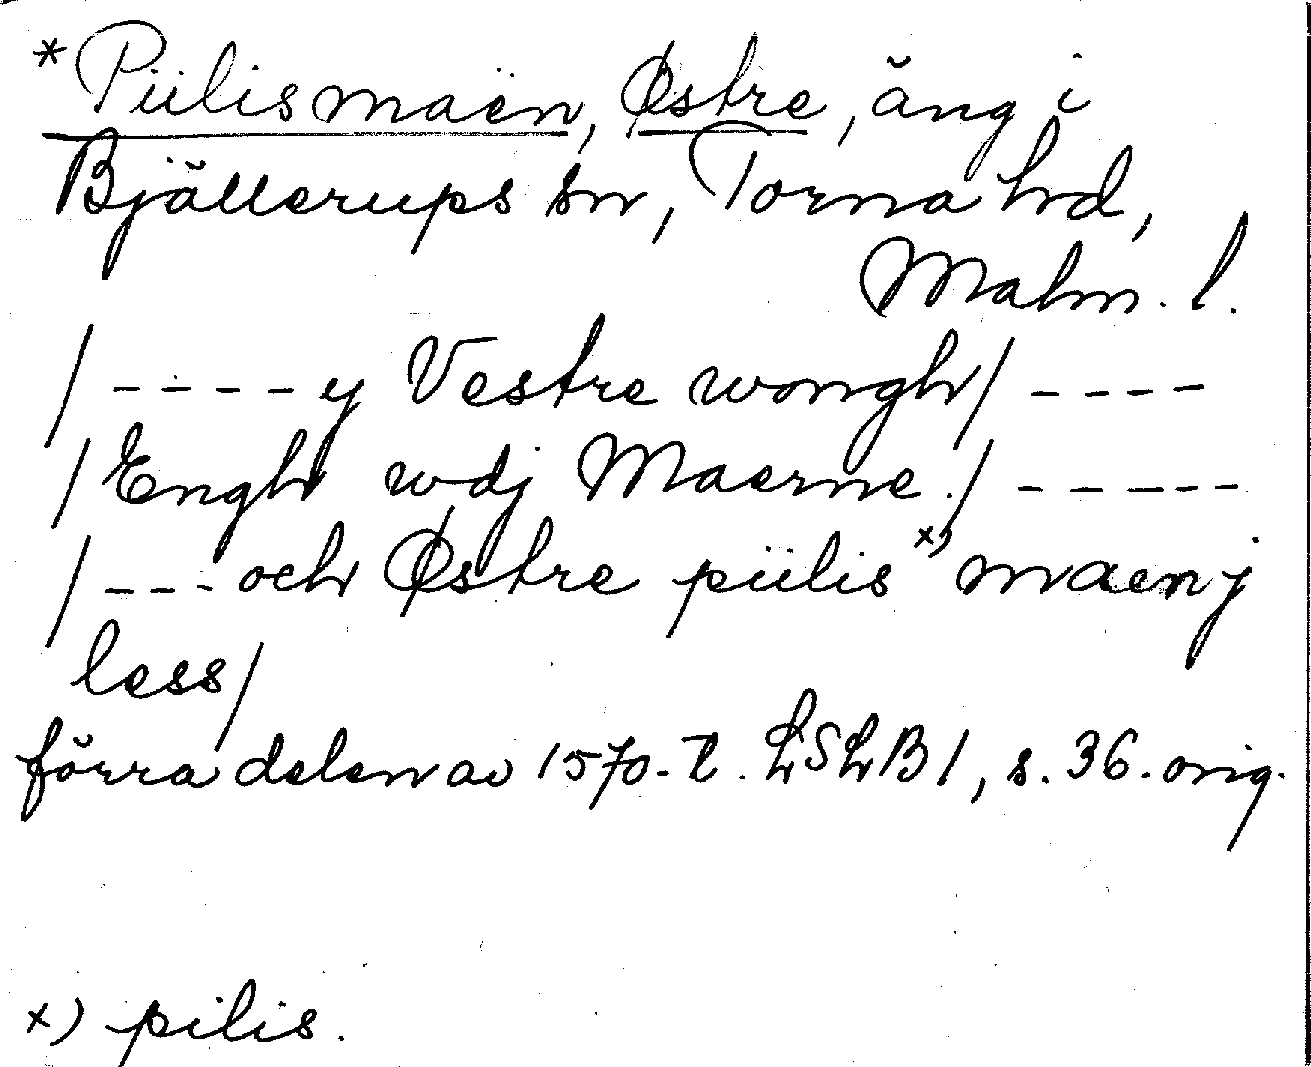 *Piilismaen, Østre, äng i
Bjällerups sn, Torna hd,
Malm. l.
/ - - - - y Vestre wongh/ - - - -
/Engh wdj Maerne./ - - - - -
/ - - - och Østre piilis x) maen j
less/
förra delen av 1570-t. LSLB1, s. 36. orig.
x) pilis.